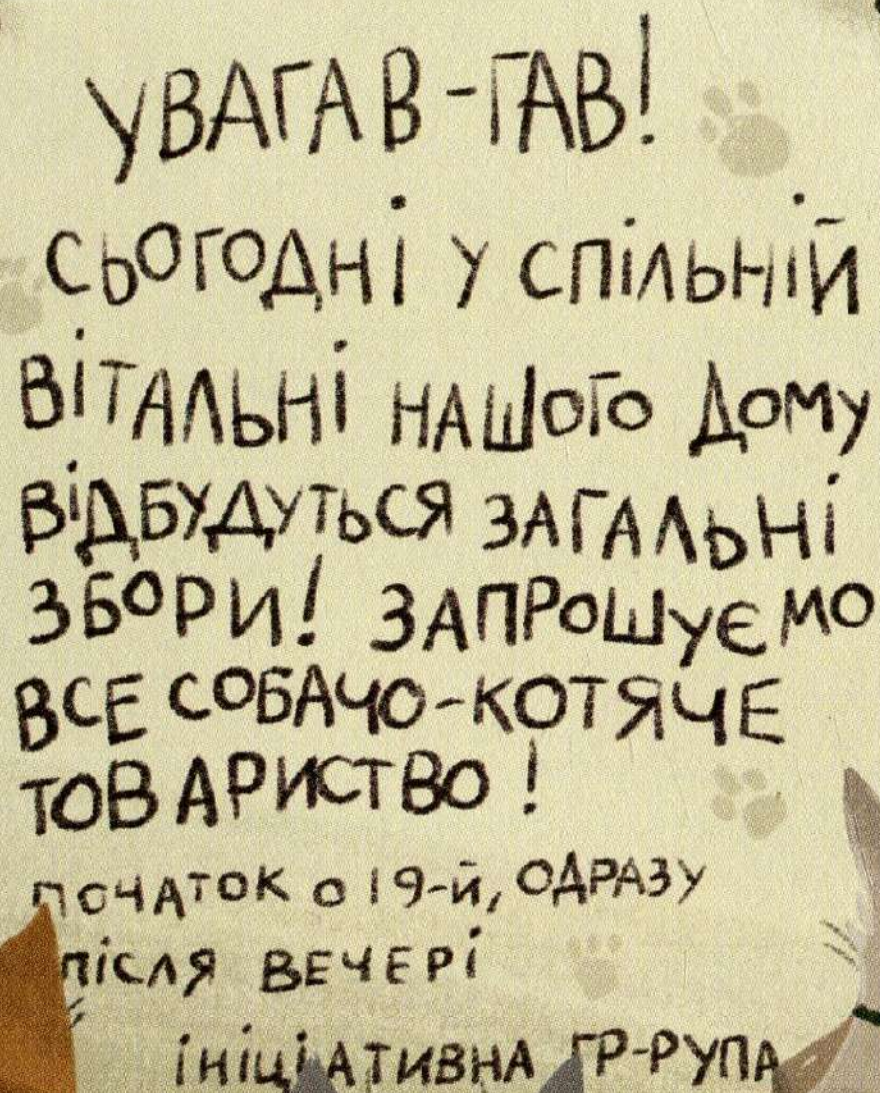 УВАГАВ-ГАВ!
СЬОГОДНІ У СПІЛЬНІЙ
ВІТАЛЬНІ НАШОГО ДОМУ
ВІДБУДУТЬСЯ ЗАГАЛЬНІ
ЗБОРИ! ЗАПРОШУЄМО
ВСЕ СОБАЧО-КОТЯЧЕ
ТОВАРИСТВО!
ПОЧАТОК О 19-Й, ОДРАЗУ
ПІСЛЯ ВЕЧЕРІ
ІНІЦІАТИВНА ГР-РУПА